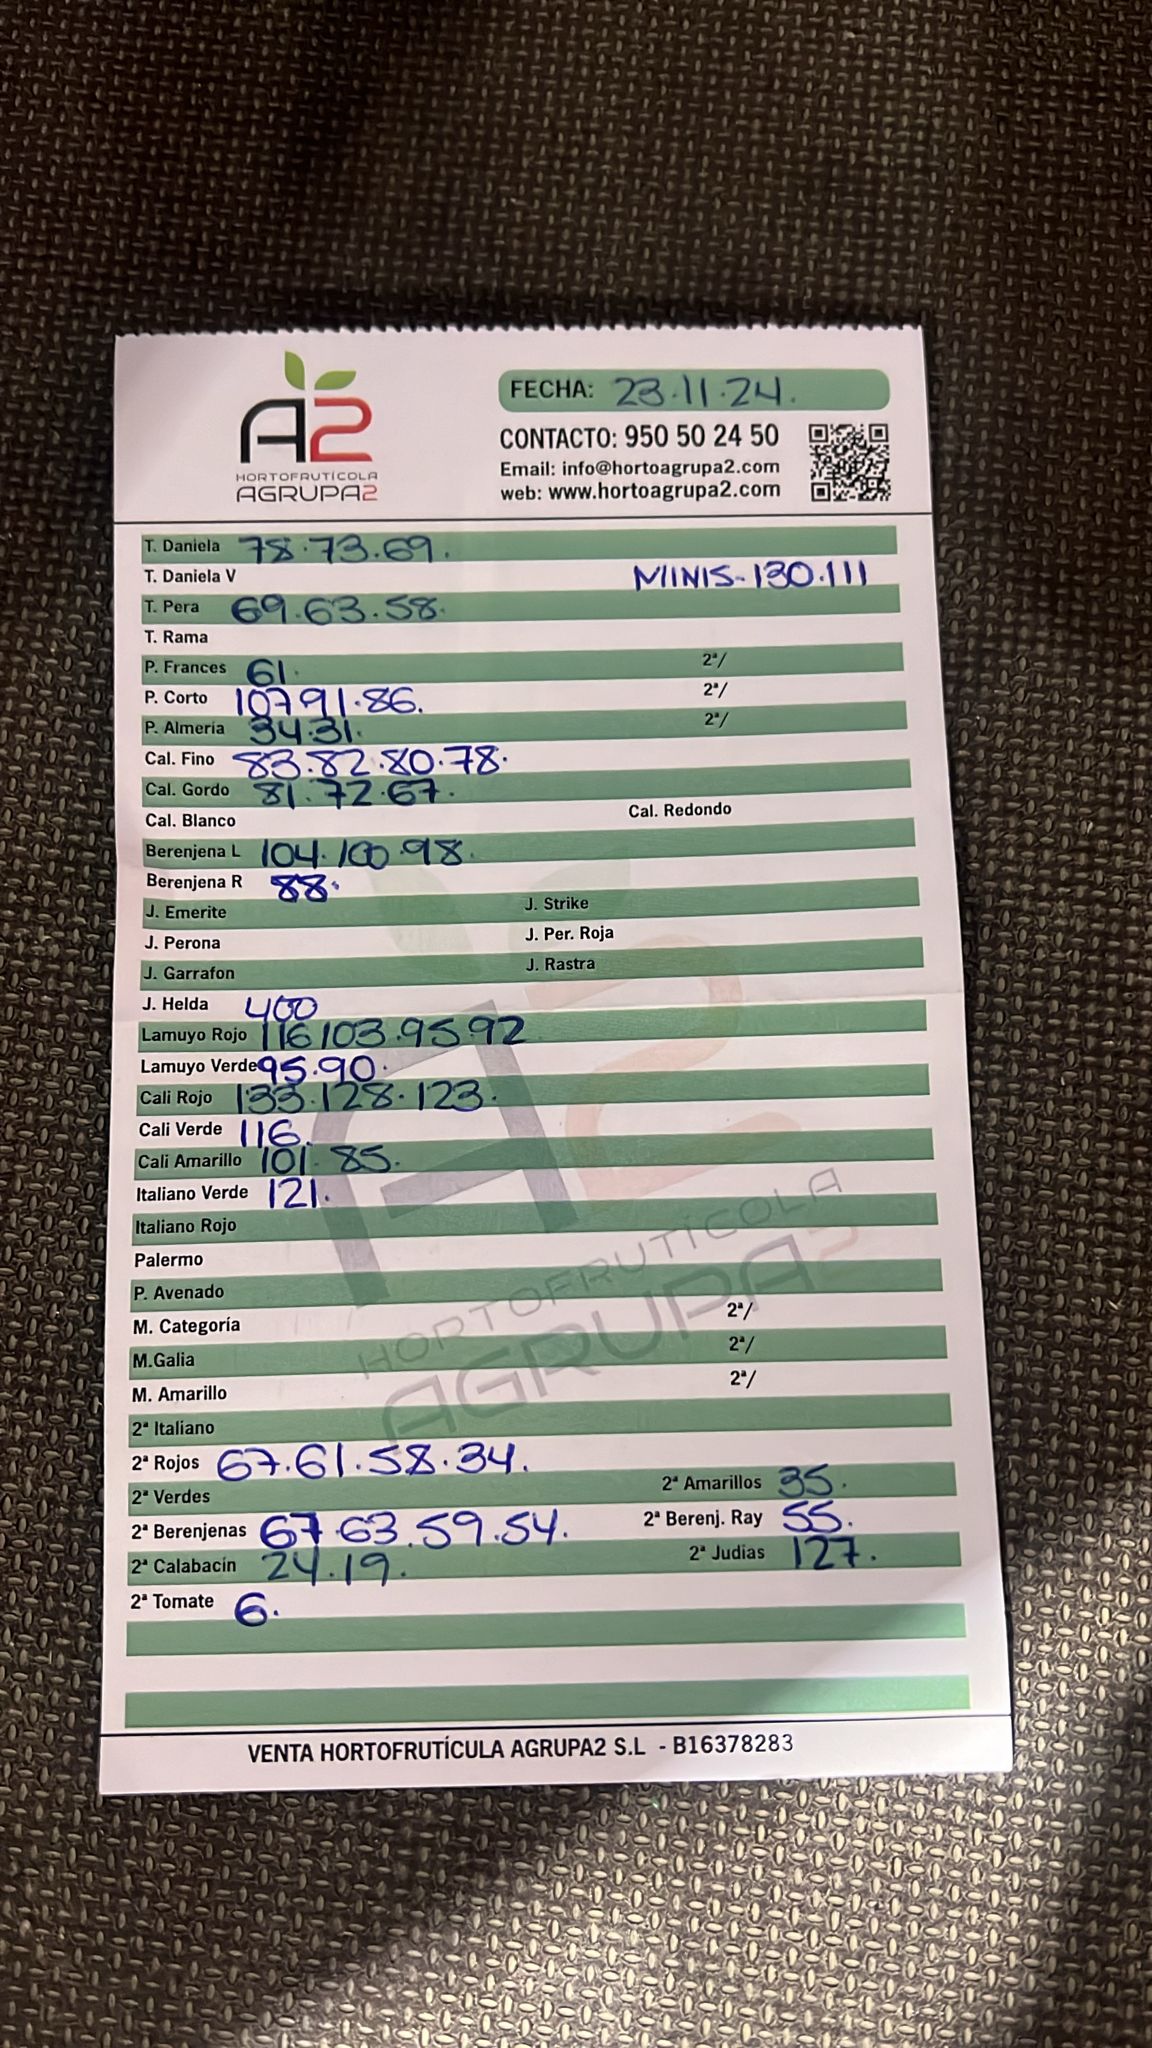 A2
HORTOFRUTÍCOLA
AGRUPA2
FECHA: 23.11.24.
CONTACTO: 950 50 24 50
Email: info@hortoagrupa2.com
web: www.hortoagrupa2.com
T. Daniela 78.73.69.
T. Daniela V MINIS-130.111
T. Pera 69.63.58.
T. Rama
P. Frances 61. 2ª/
P. Corto 107 91.86. 2ª/
P. Almería 34.31. 2ª/
Cal. Fino 83.82.80.78.
Cal. Gordo 81.72.67.
Cal. Blanco Cal. Redondo
Berenjena L 104.100.98.
Berenjena R 88.
J. Emerite J. Strike
J. Perona J. Per. Roja
J. Garrafon J. Rastra
J. Helda 400
Lamuyo Rojo 116 103.95.92
Lamuyo Verde 95.90.
Cali Rojo 133.128.123.
Cali Verde 116.
Cali Amarillo 101.85.
Italiano Verde 121.
Italiano Rojo
Palermo
P. Avenado
M. Categoría 2ª/
M.Galia 2ª/
M. Amarillo 2ª/
2ª Italiano
2ª Rojos 67.61.58.34.
2ª Verdes 2ª Amarillos 35.
2ª Berenjenas 67.63.59.54. 2ª Berenj. Ray 55.
2ª Calabacín 24.19. 2ª Judias 127.
2ª Tomate 6.
A2
HORTOFRUTÍCOLA
AGRUPA2
VENTA HORTOFRUTÍCULA AGRUPA2 S.L - B16378283